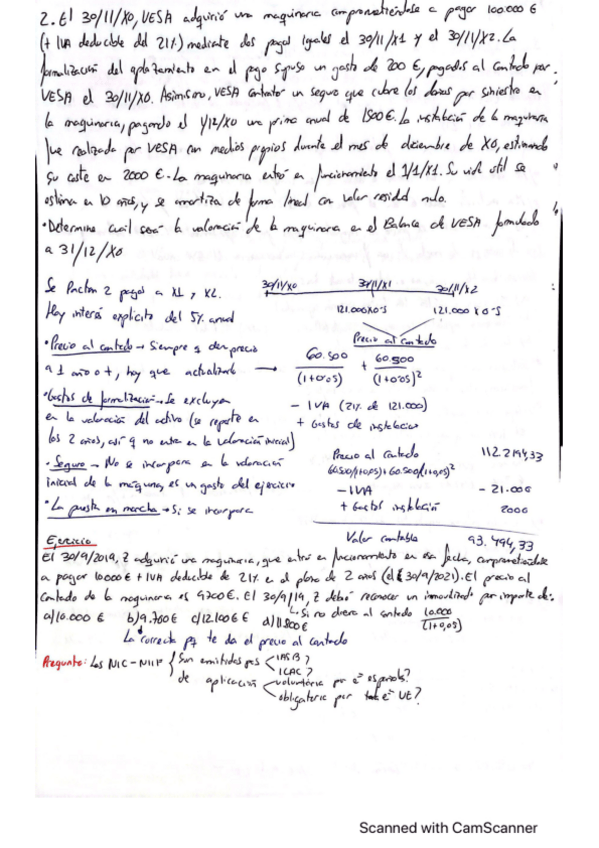 2. El 30/11/X0, VESA adquirió una maquinaria comprometiéndose a pagar 100.000 €
(+ IVA deducible del 21%) mediante dos pagos iguales el 30/11/X1 y el 30/11/X2. La
formalización del aplazamiento en el pago supuso un gasto de 200 €, pagados al contado por
VESA el 30/11/X0. Asimismo, VESA contrató un seguro que cubre los daños por siniestro en
la maquinaria, pagando el 1/12/X0 una prima anual de 1500 €. La instalación de la maquinaria
fue realizada por VESA con medios propios durante el mes de diciembre de X0, estimando
su coste en 2000 €. La maquinaria entró en funcionamiento el 1/1/X1. Su vida útil se
estima en 10 años, y se amortiza de forma lineal con valor residual nulo.
• Determine cuál será la valoración de la maquinaria en el Balance de VESA formulado
a 31/12/X0
Se Pactan 2 pagos a X1 y X2.
Hay interés explícito del 5% anual
30/11/X0 30/11/X1 30/11/X2
121.000x0'5 121.000 x 0'5
Precio al contado
• Precio al contado → Siempre q den precio
a 1 año o +, hay que actualizarlo →
60.500 / (1+0'05) + 60.500 / (1+0'05)²
• Gastos de formalización → Se excluyen
en la valoración del activo (se reparte en
los 2 años, así q no entra en la valoración inicial)
- IVA (21% de 121.000)
+ Gastos de instalación
• Seguro → No se incorpora en la valoración
inicial de la máquina, es un gasto del ejercicio
• La puesta en marcha → Si se incorpora
Precio al contado 112.494,33
60.500/(1+0,05) + 60.500/(1+0,05)²
- IVA - 21.000
+ Gastos instalación 2000
Valor contable 93.494,33
Ejercicio
El 30/9/2019, Z adquirió una maquinaria, que entró en funcionamiento en esa fecha, comprometiéndose
a pagar 10.000 € + IVA deducible de 21% en el plazo de 2 años (el 30/9/2021). El precio al
contado de la maquinaria es 9700 €. El 30/9/19, Z deberá reconocer un inmovilizado por importe de:
a) 10.000 € b) 9.700 € c) 12.100 € d) 11.800 €
↳ Si no diera al contado 10.000 / (1+0,05)
La correcta pq te da el precio al contado
Pregunta: Las NIC-NIIF { Son emitidas por < IASB?
ICAC?
de aplicación < voluntaria por eª española?
obligatoria por eª UE?
Scanned with CamScanner